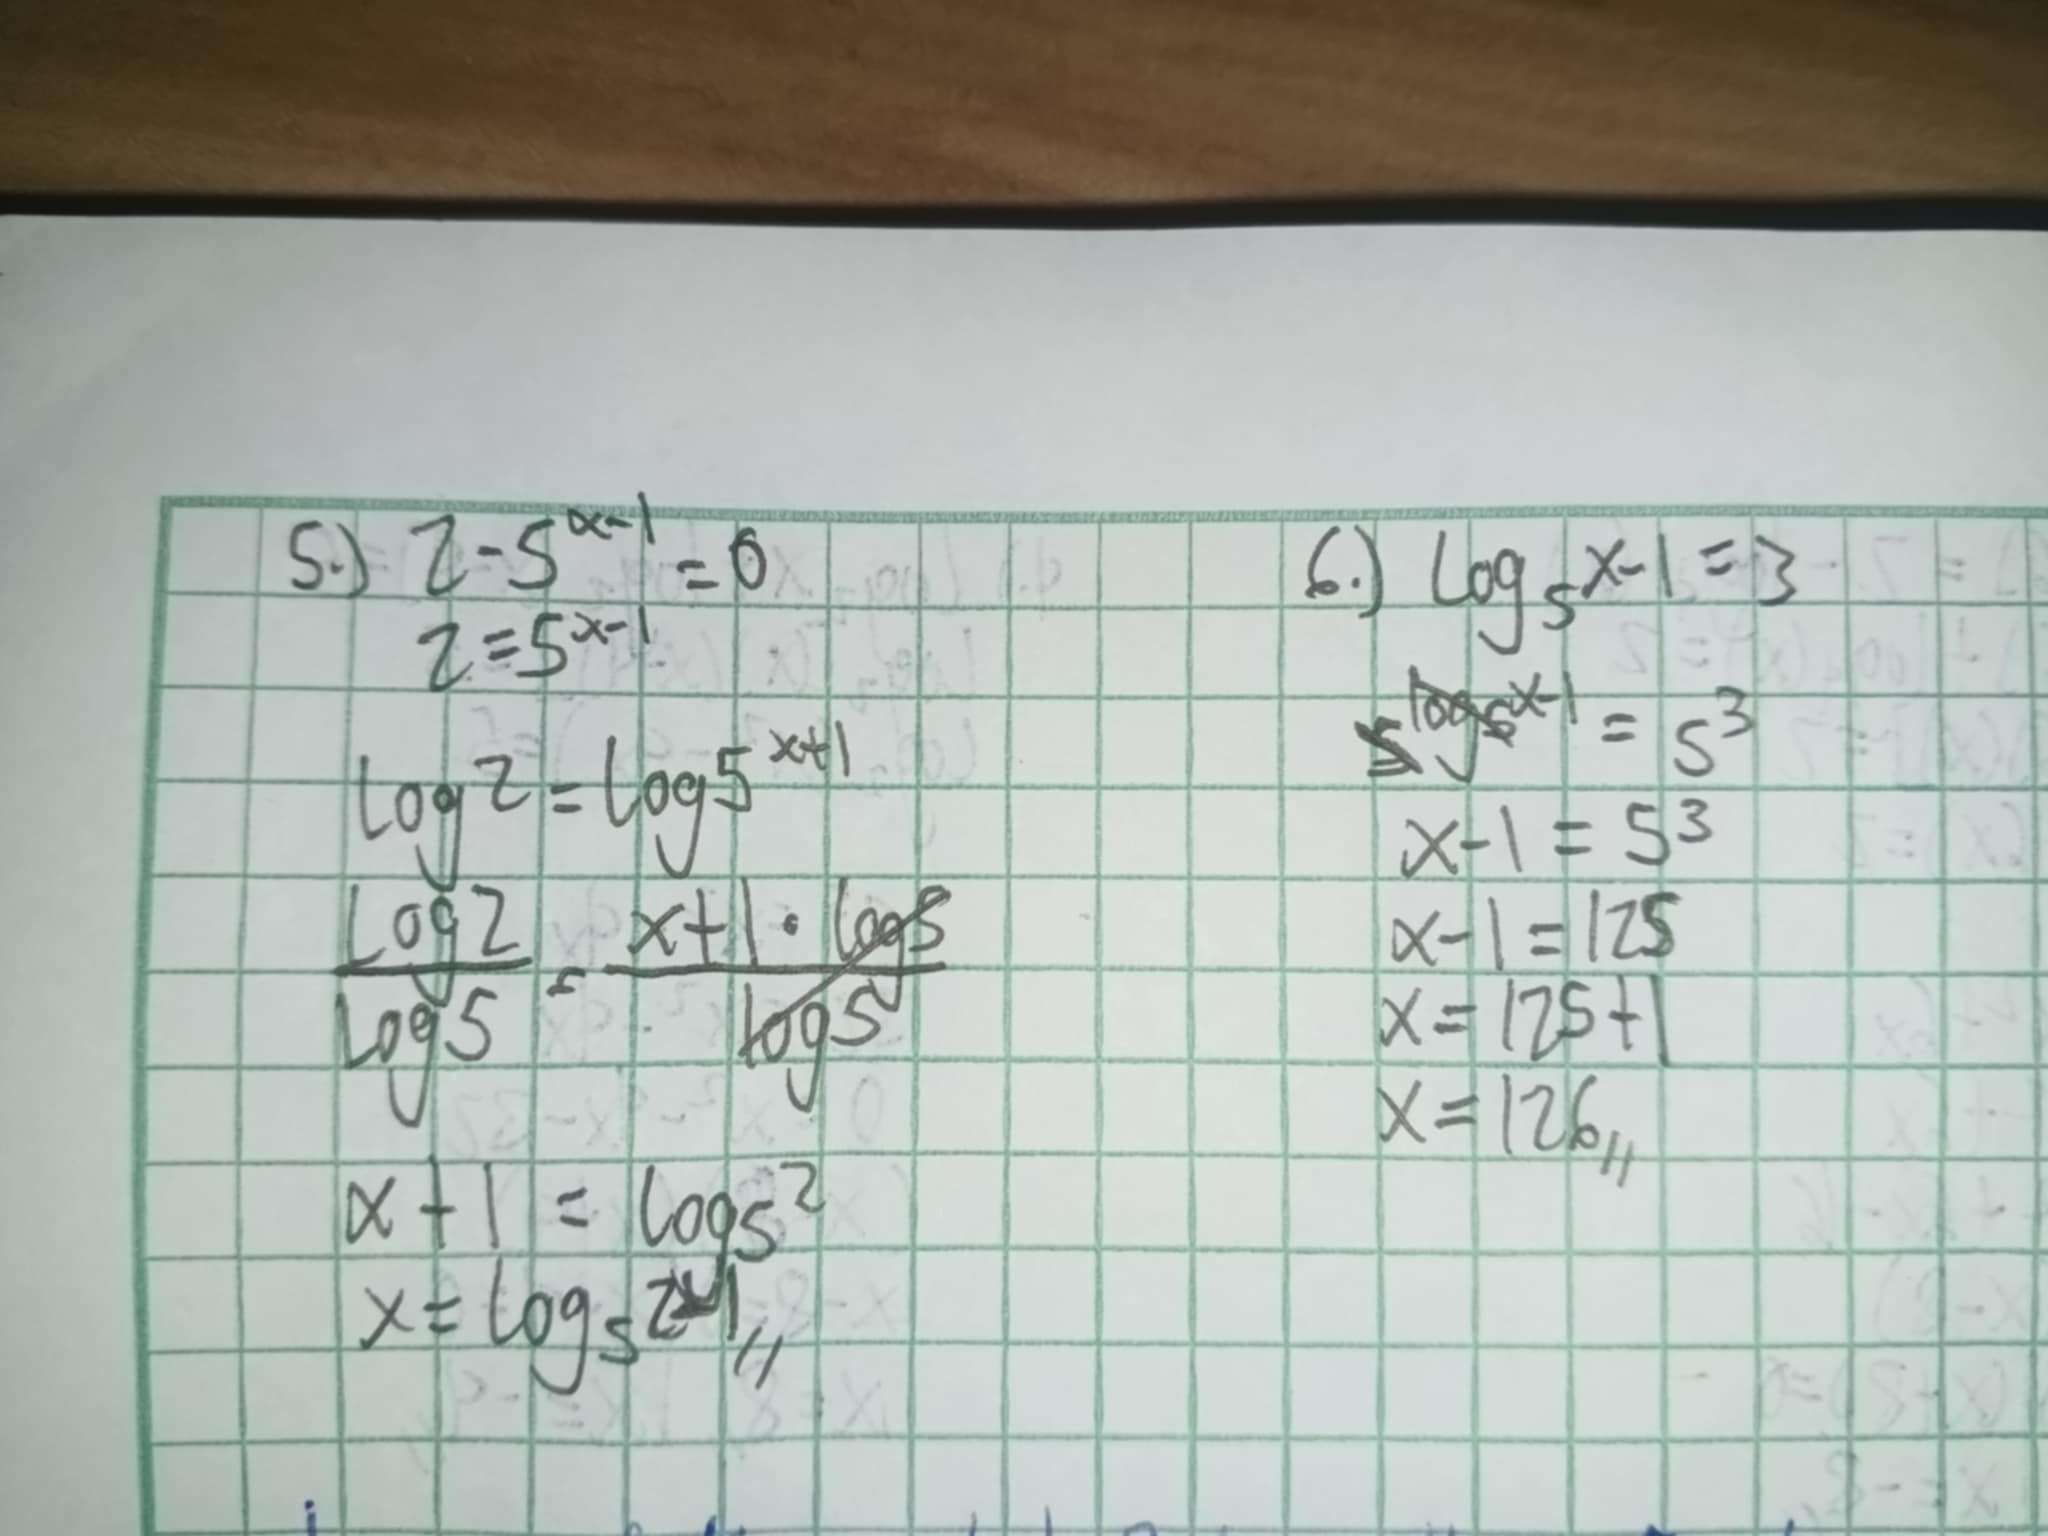 5.) 2-5^{x-1} = 0
2 = 5^{x-1}
log 2 = log 5^{x+1}
\frac{log 2}{log 5} = \frac{x+1 \cdot log 5}{log 5}
x + 1 = log_5 2
x = log_5 2-1,,
6.) log_5 x-1 = 3
5^{log_5 x-1} = 5^3
x-1 = 5^3
x-1 = 125
x = 125+1
x = 126,,